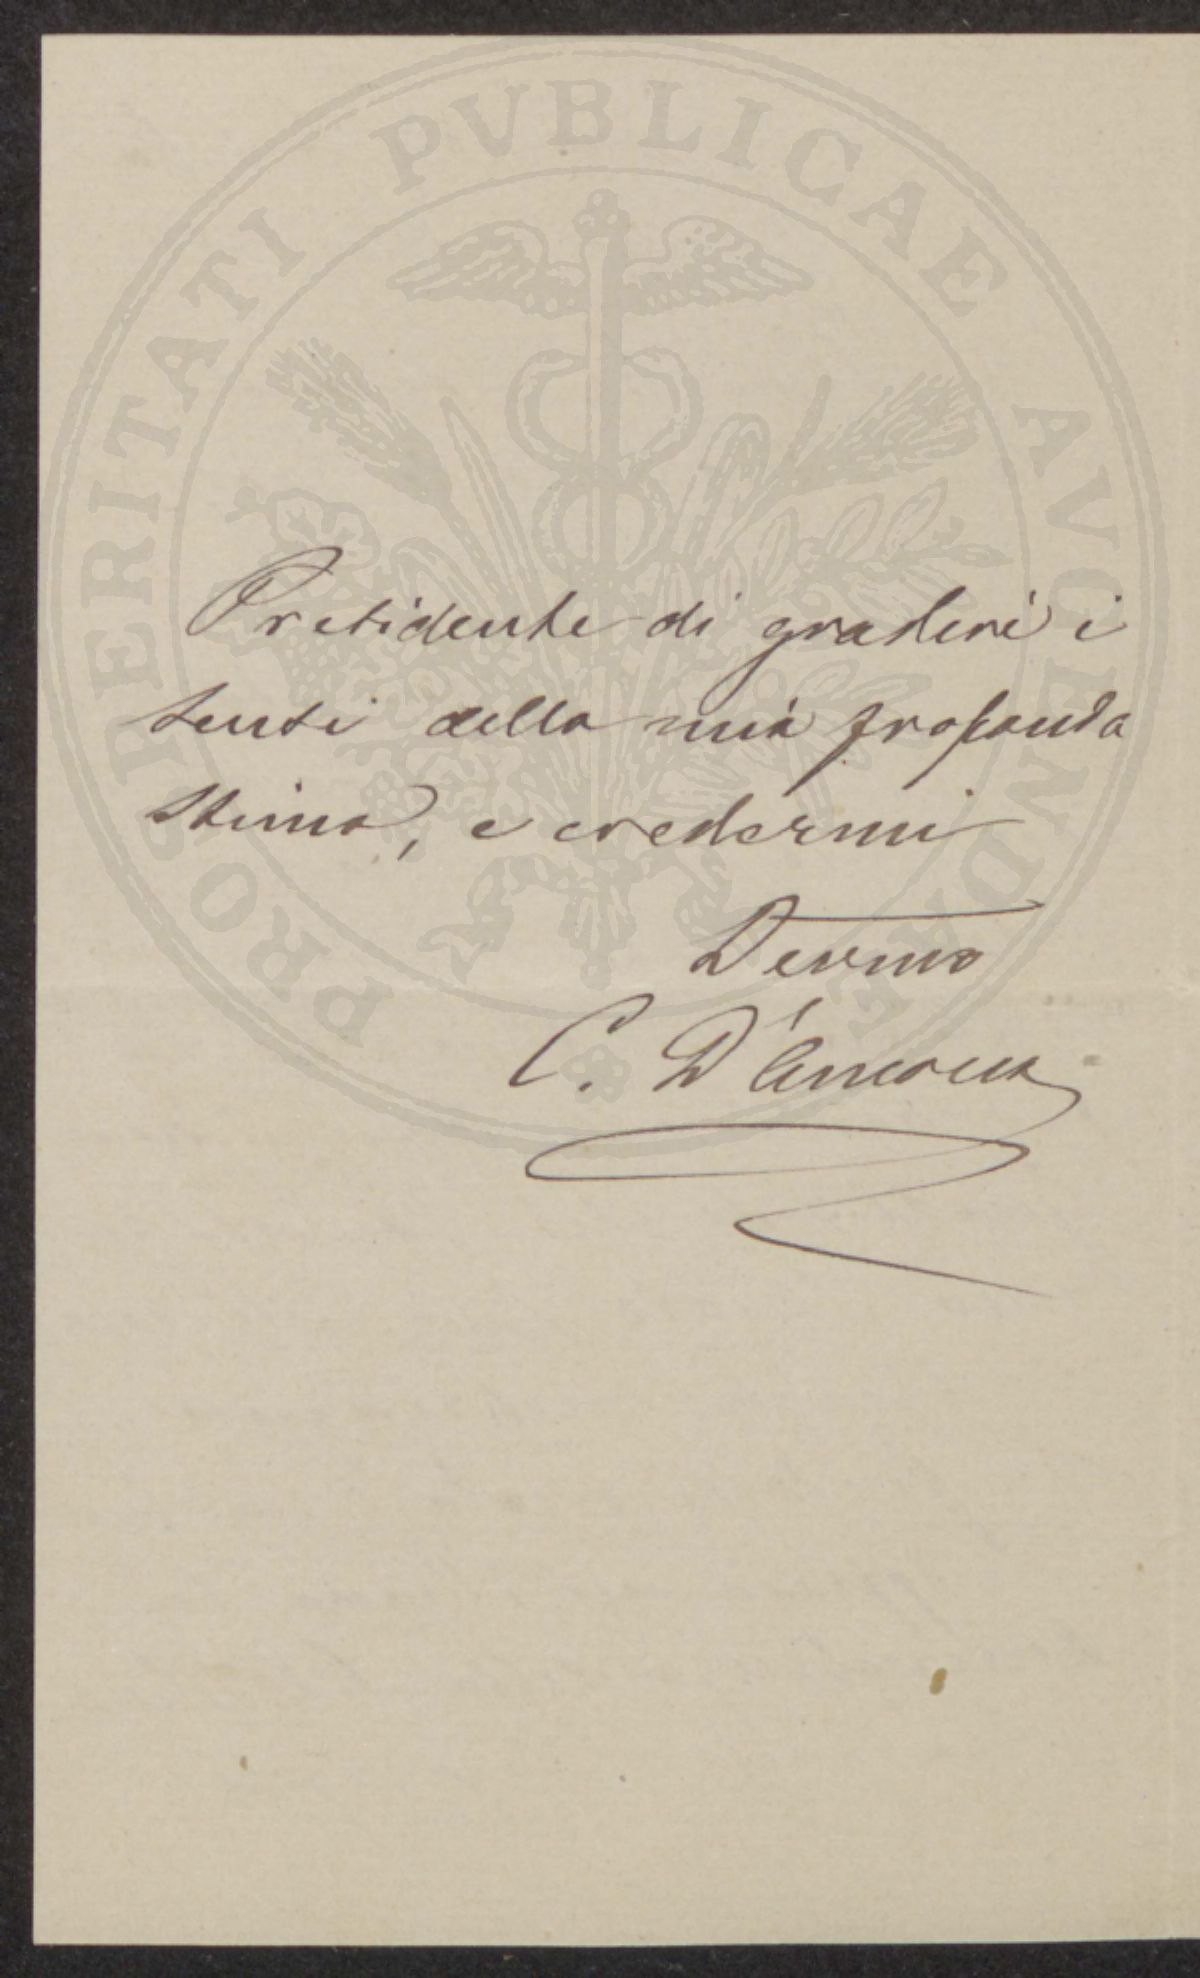 PROSPERITATI PVBLICAE AVGENDAE
Presidente di gradire i
sensi della mia profonda
stima, e credermi
Devmo
C. D'Ancona